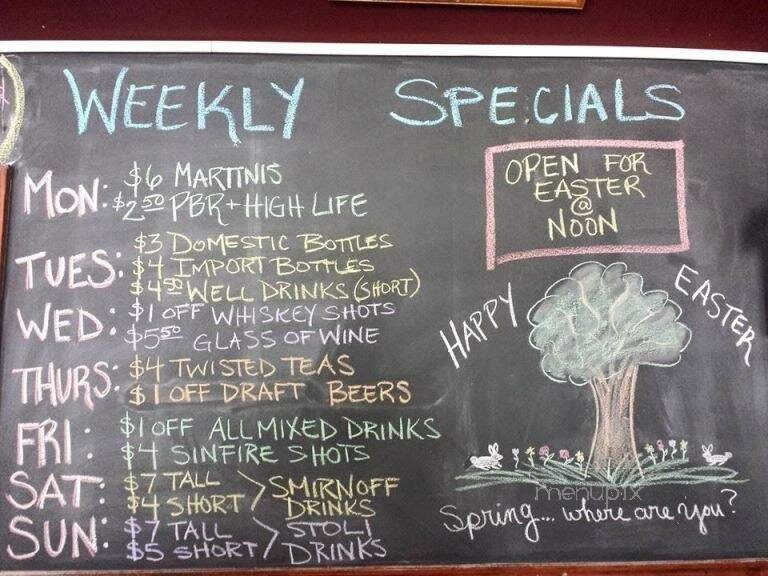 WEEKLY SPECIALS
MON: $6 MARTINIS
$2.50 PBR + HIGH LIFE
TUES: $3 DOMESTIC BOTTLES
$4 IMPORT BOTTLES
$4.50 WELL DRINKS (SHORT)
WED: $1 OFF WHISKEY SHOTS
$5.50 GLASS OF WINE
THURS: $4 TWISTED TEAS
$1 OFF DRAFT BEERS
FRI: $1 OFF ALL MIXED DRINKS
$4 SINFIRE SHOTS
SAT: $7 TALL > SMIRNOFF
$4 SHORT DRINKS
SUN: $7 TALL > STOLI
$5 SHORT DRINKS
OPEN FOR
EASTER
@
NOON
HAPPY EASTER
menupix
Spring... where are you?